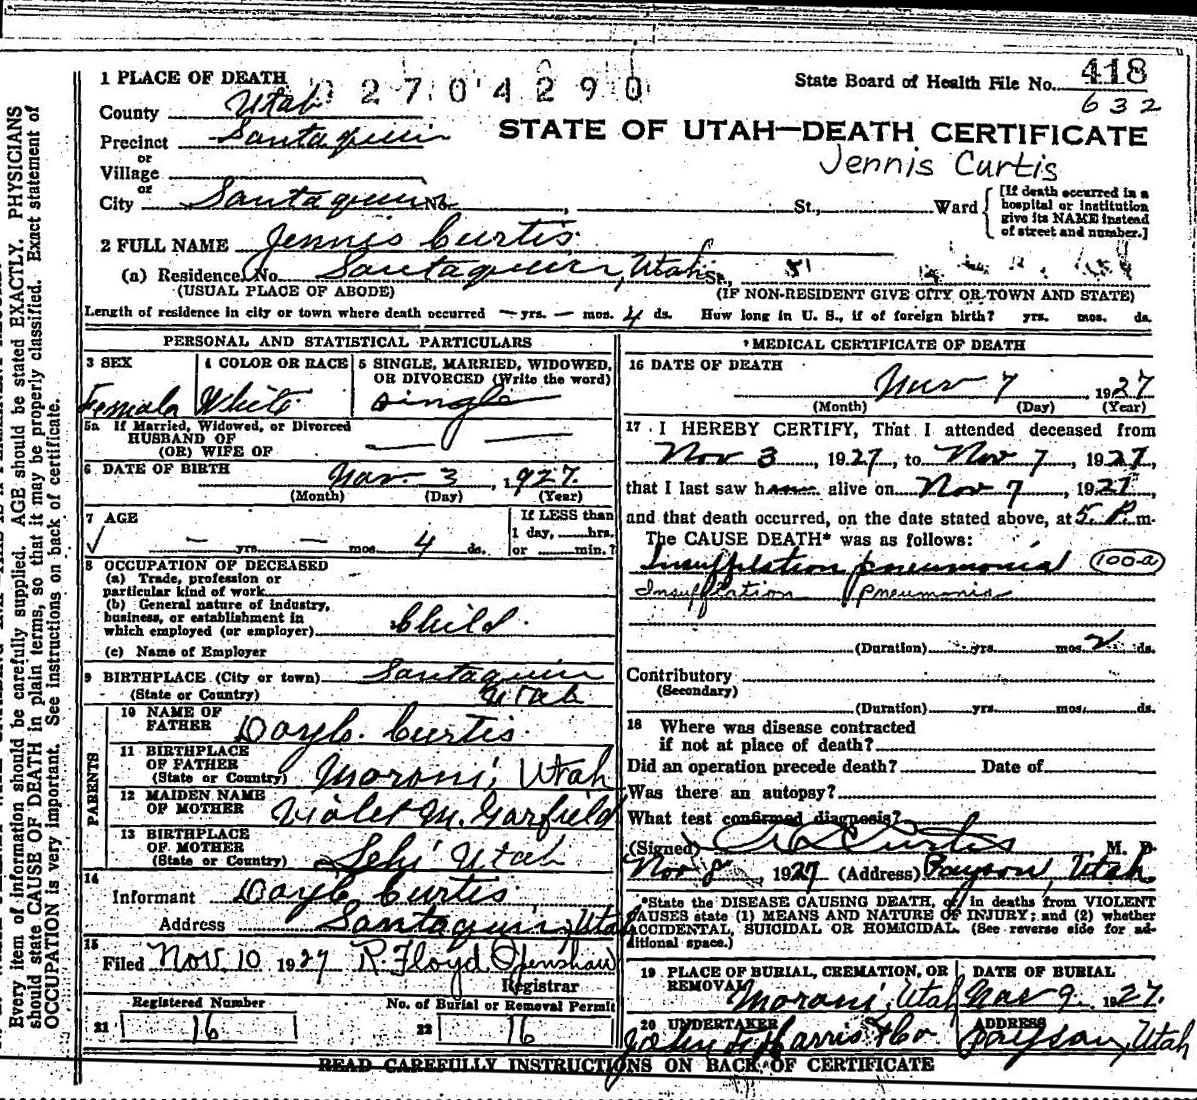 1 PLACE OF DEATH
2704290
State Board of Health File No. 418
632
County Utah
STATE OF UTAH—DEATH CERTIFICATE
Precinct Santaquin
Jennis Curtis
or
Village
or
City Santaquin No. , St., Ward
[If death occurred in a
hospital or institution
give its NAME instead
of street and number.]
2 FULL NAME Jennis Curtis
(a) Residence, No. Santaquin, Utah St.,
(USUAL PLACE OF ABODE) (IF NON-RESIDENT GIVE CITY OR TOWN AND STATE)
Length of residence in city or town where death occurred — yrs. — mos. 4 ds. How long in U. S., if of foreign birth? yrs. mos. ds.
PERSONAL AND STATISTICAL PARTICULARS
3 SEX
Female
4 COLOR OR RACE
White
5 SINGLE, MARRIED, WIDOWED,
OR DIVORCED (Write the word)
Single
5a If Married, Widowed, or Divorced
HUSBAND OF
(OR) WIFE OF — —
6 DATE OF BIRTH Nov. 3, 1927.
(Month) (Day) (Year)
7 AGE
✓ — yrs. — mos. 4 ds.
If LESS than
1 day, hrs.
or min.?
8 OCCUPATION OF DECEASED
(a) Trade, profession or
particular kind of work
(b) General nature of industry,
business, or establishment in
which employed (or employer) Child.
(c) Name of Employer
9 BIRTHPLACE (City or town) Santaquin
(State or Country) Utah
PARENTS
10 NAME OF
FATHER Curtis.
11 BIRTHPLACE
OF FATHER
(State or Country) Moroni, Utah
12 MAIDEN NAME
OF MOTHER Violet M. Garfield
13 BIRTHPLACE
OF MOTHER
(State or Country) Lehi Utah
14
Informant Curtis
Address Santaquin, Utah
15
Filed Nov. 10 1927 R. Floyd Openshaw
Registrar
Registered Number No. of Burial or Removal Permit
21 16 22 16
MEDICAL CERTIFICATE OF DEATH
16 DATE OF DEATH
Nov 7 1927
(Month) (Day) (Year)
17 I HEREBY CERTIFY, That I attended deceased from
Nov 3, 1927, to Nov 7, 1927,
that I last saw h alive on Nov 7, 1927,
and that death occurred, on the date stated above, at 5 P. m.
The CAUSE DEATH* was as follows:
Insufflation pneumonia 100-a
Insufflation pneumonia
(Duration) yrs. mos. 2 ds.
Contributory
(Secondary)
(Duration) yrs. mos. ds.
18 Where was disease contracted
if not at place of death?
Did an operation precede death? Date of
Was there an autopsy?
What test confirmed diagnosis?
(Signed) Curtis, M. D.
Nov 8, 1927 (Address) Payson, Utah.
*State the DISEASE CAUSING DEATH, or in deaths from VIOLENT
CAUSES state (1) MEANS AND NATURE OF INJURY; and (2) whether
ACCIDENTAL, SUICIDAL OR HOMICIDAL. (See reverse side for ad-
ditional space.)
19 PLACE OF BURIAL, CREMATION, OR
REMOVAL
Moroni, Utah
DATE OF BURIAL
Nov 9. 1927.
20 UNDERTAKER
Harris
ADDRESS
Payson, Utah
READ CAREFULLY INSTRUCTIONS ON BACK OF CERTIFICATE
Every item of information should be carefully supplied. AGE should be stated EXACTLY. PHYSICIANS
should state CAUSE OF DEATH in plain terms, so that it may be properly classified. Exact statement of
OCCUPATION is very important. See instructions on back of certificate.